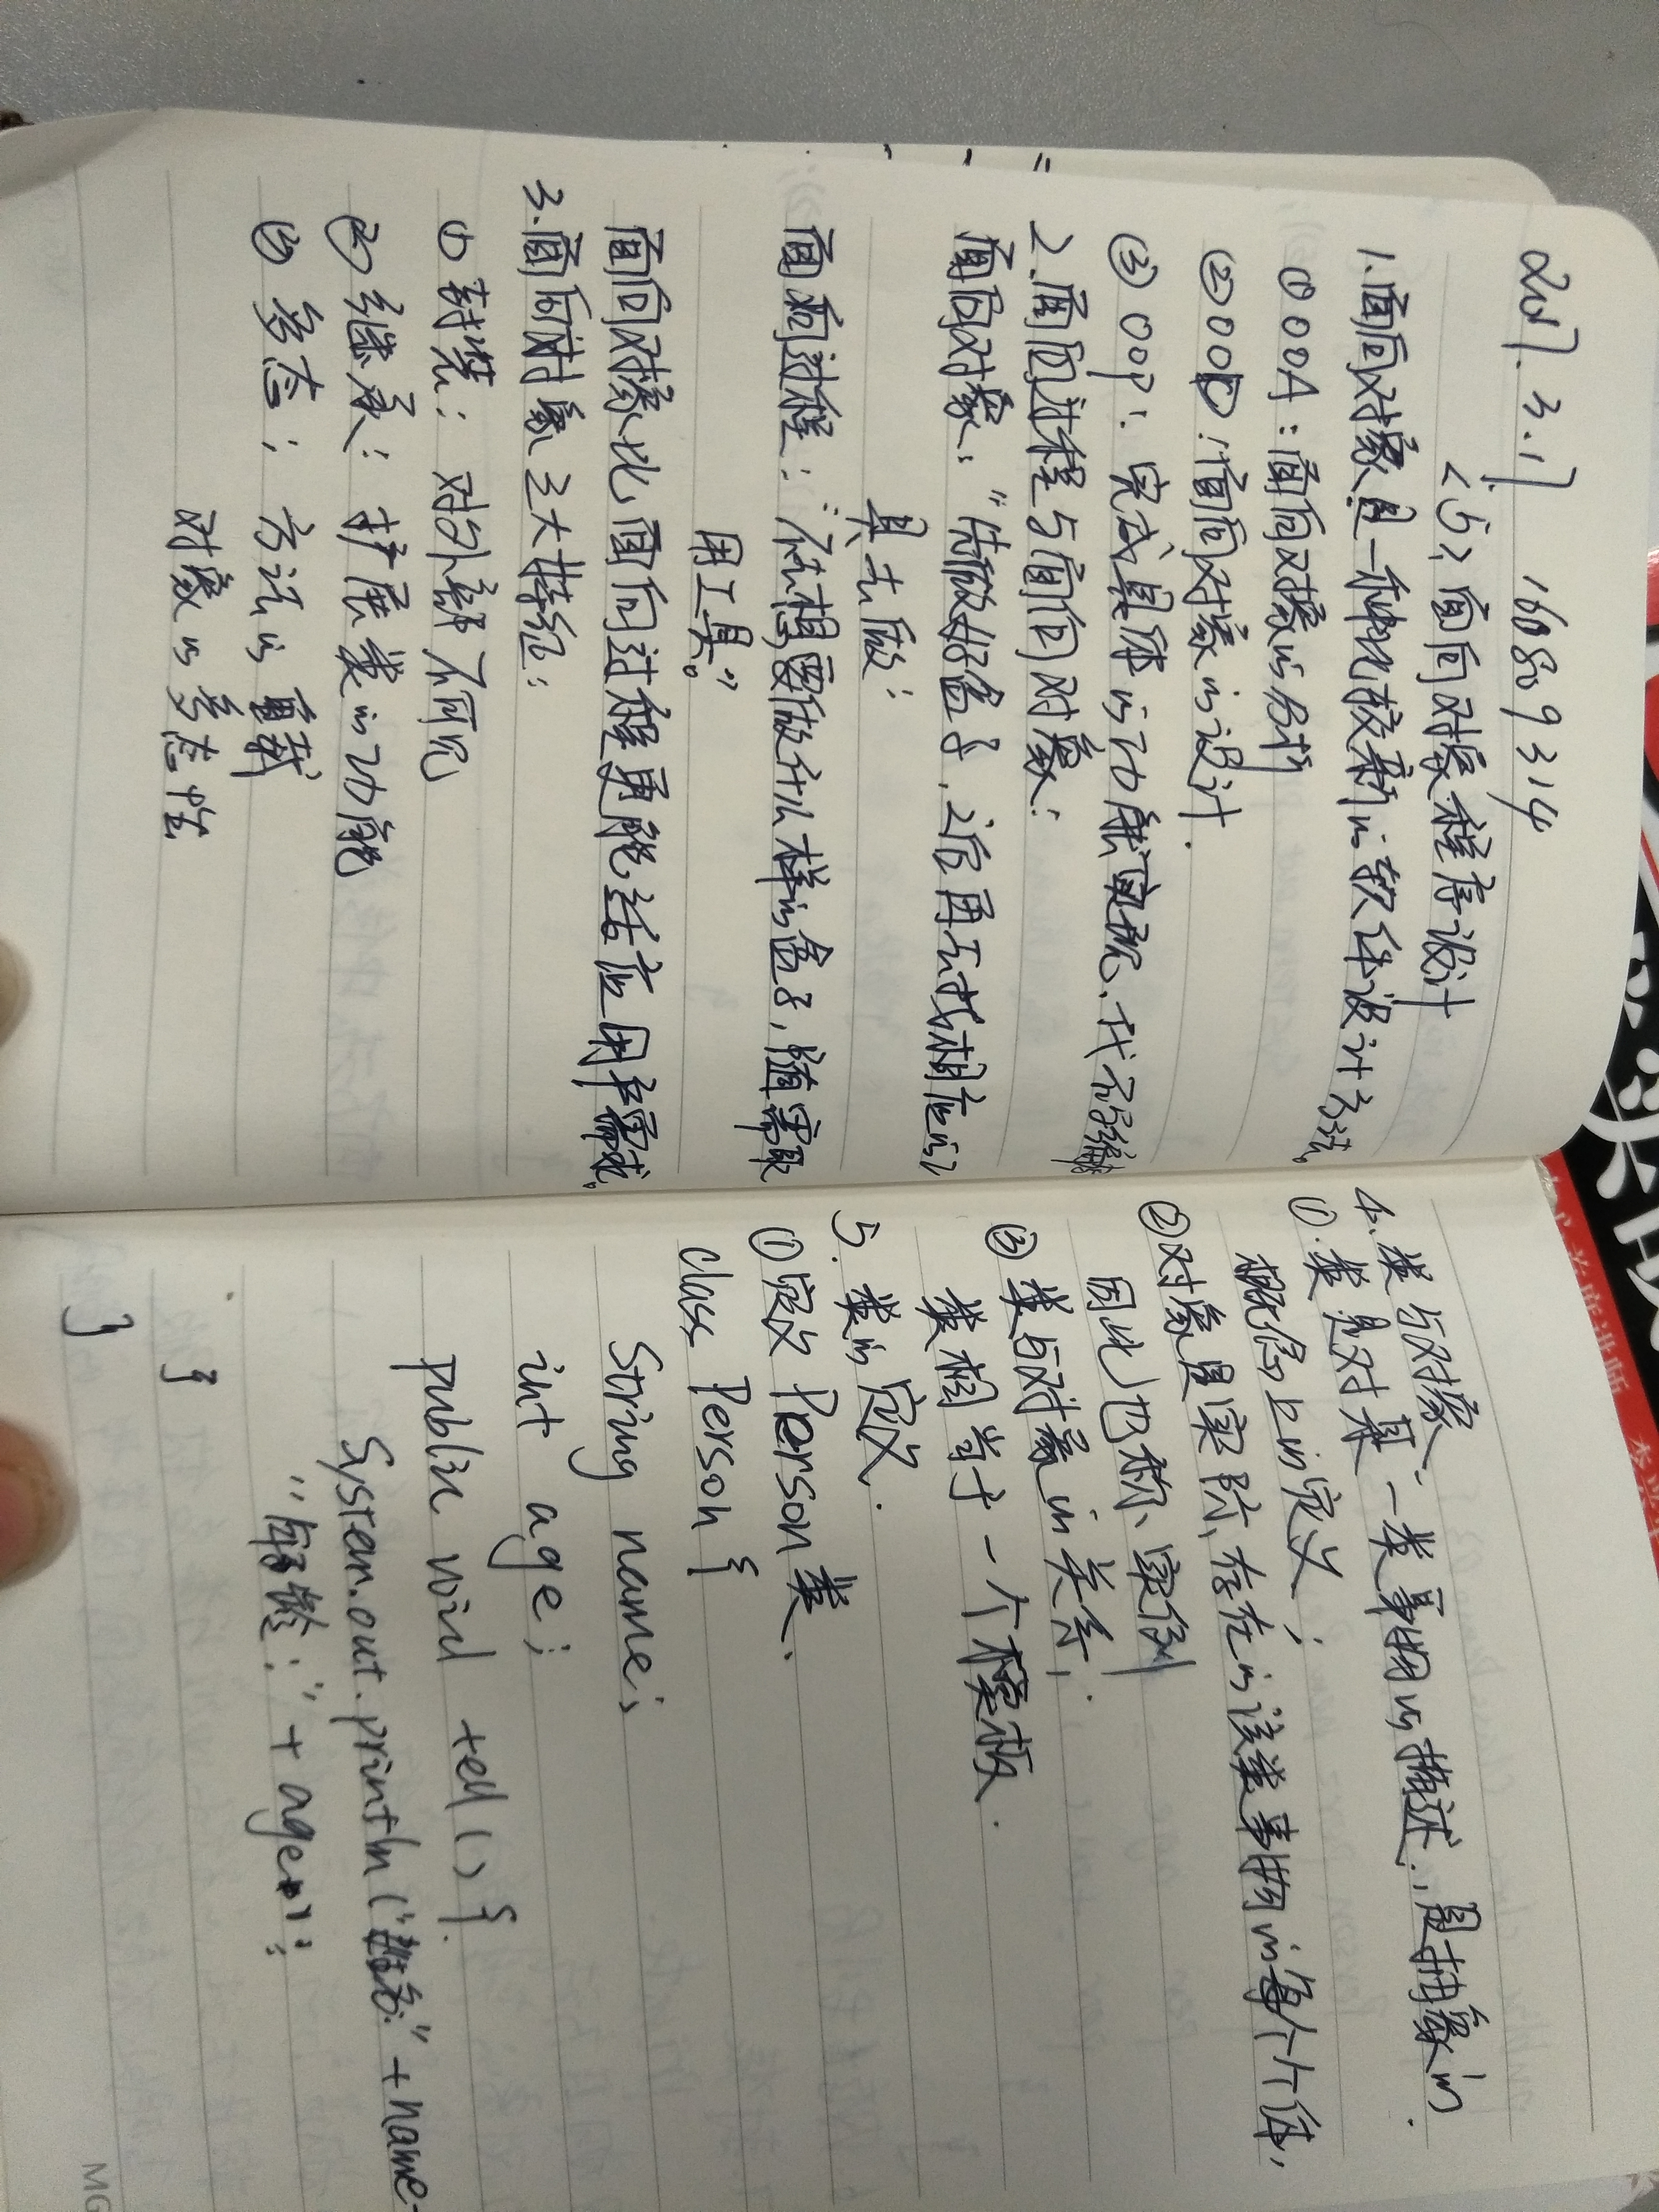 2017.3.17 16809314
<5> 面向对象程序设计
1.面向对象是一种比较新的软件设计方法。
① OOA：面向对象的分析
② OOD：面向对象的设计
③ OOP：完成具体的功能实现、代码编
2.面向过程与面向对象：
面向对象：“先做好盒子，之后再去找相应的
具去做；
面向过程：“先想要做什么样的盒子，随需取
用工具。”
面向对象比面向过程更能适应用户需求。
3.面向对象三大特征：
① 封装：对外部不可见
② 继承：扩展类的功能
③ 多态：方法的重载
对象的多态性
4.类与对象
①.类是对某一类事物的描述，是抽象的
概念上的定义；
②对象是实际存在的该类事物的每个个体，
因此也称实例
③ 类与对象的关系：
类相当于一个模板.
5.类的定义.
①定义Person类.
class Person {
String name;
int age;
public void tell(){
System.out.println("姓名:"+name+
"年龄:"+age);
}
}
MG